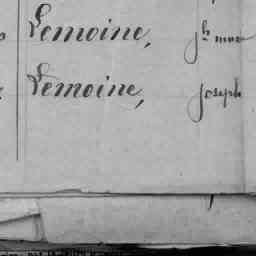 Lemoine,
Lemoine, Joseph